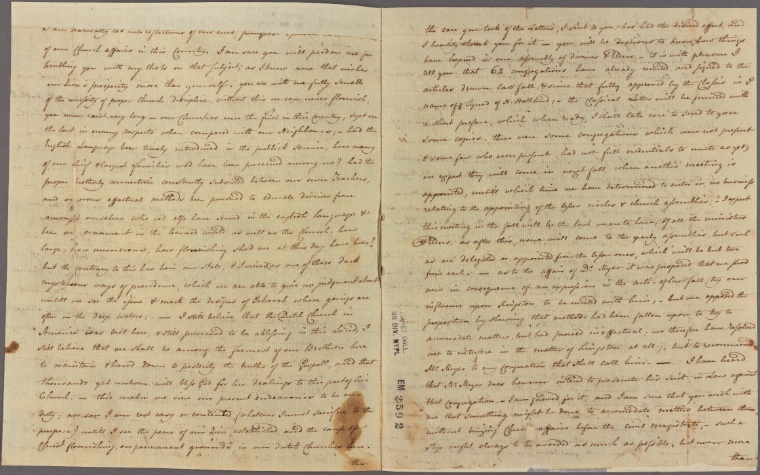 & am naturally led into reflections of our sins,
of our Church affairs in this Country. I am sure you will pardon me for
troubling you with my thots on that subject; as I know none that wishes
our zion's prosperity more than yourself; you are with me fully sensible
of the necessity of proper Church discipline, without this we can never flourish,
nor never exist very long — our Churches were the first in this Country, & yet are
the last in many respects when compared with our Neighbours, — had the
English Language been timely introduced in the publick Service, how many
of our chief & largest families wod have been preserved among us? had the
proper brotherly connection constantly subsisted between our own Teachers,
and vigorous effectual methods been pursued to educate divines from
amongst ourselves who cod also have served in the english Language &
been an ornament in the learned world as well as the Church, how
large, how numerous, how flourishing shod we at this day have been?
but the contrary to this has been our State, & I view it as one of those dark
mysterious ways of providence, which we are able to give no judgment about
untill we see the issue & mark the designs of Jehovah whose goings are
often in the deep waters; — I still believe that the Dutch Church in
America was sent here, & still preserved to be a blessing in this land; I
still believe that we shall be among the foremost of our Brethren here
to maintain & hand down to posterity the truths of the Gospell, and that
thousands yet unborn will bless God for his dealings to this part of his
Church. — this makes me view our present endeavours to be our
duty; nor can I ever rest easy or contented (whatever I must sacrifice to the
purpose) untill I see the peace of our zion established and the cause of
Christ flourishing on permanent grounds in our dutch Churches here.
the
the care you took of the Letters; I sent to you has had the desired effect, and
I heartily thank you for it — you will be desirous to know how things
have happend in our assembly of divines & Elders — it is with pleasure I
tell you that 62 congregations have already united and signed to the
articles drawn last fall, & since that fully approved by the Classis in the
name of ye Synod of N. Holland; — the Classical Letter will be printed with
a short preface, which when ready, I shall take care to send to you
some copies. there were some congregations which were not present
& some few who were present had not full credentials to unite as yet;
we expect they will come in next fall when another meeting is
appointed, untill which time we have determined to enter in no business
relating to the appointing of the lesser circles & church assemblies; I expect
this meeting in the fall will be the last we are to have, of all the ministers
& Elders; as after this, none will come to the yearly assemblies, but such
as are delegated or appointed from the lesser ones, which will be but two
from each; — as to the affair of Dr. Meyer it was proposed that we shod
now in consequence of an expression in the acts of last fall, try our
influence upon Kingston to be united with him; — but we opposed the
proposition by shewing that methods had been fallen upon to try to
accomodate matters, but had proved ineffectual, we therefore have resolved
not to interfere in the matter of Kingston at all; but to recommend
Mr. Meyer to any Congregation that shod call him. — I have heard
that Mr. Meyer does however intend to prosecute his Suit at Law against
that congregation — I am grieved for it, and I am sure that you wish with
me that something might be done to accomodate matters between them
without bringing Church affairs before the civil magistrate, — such a
step ought always to be avoided as much as possible, but never more
than
EM 2592